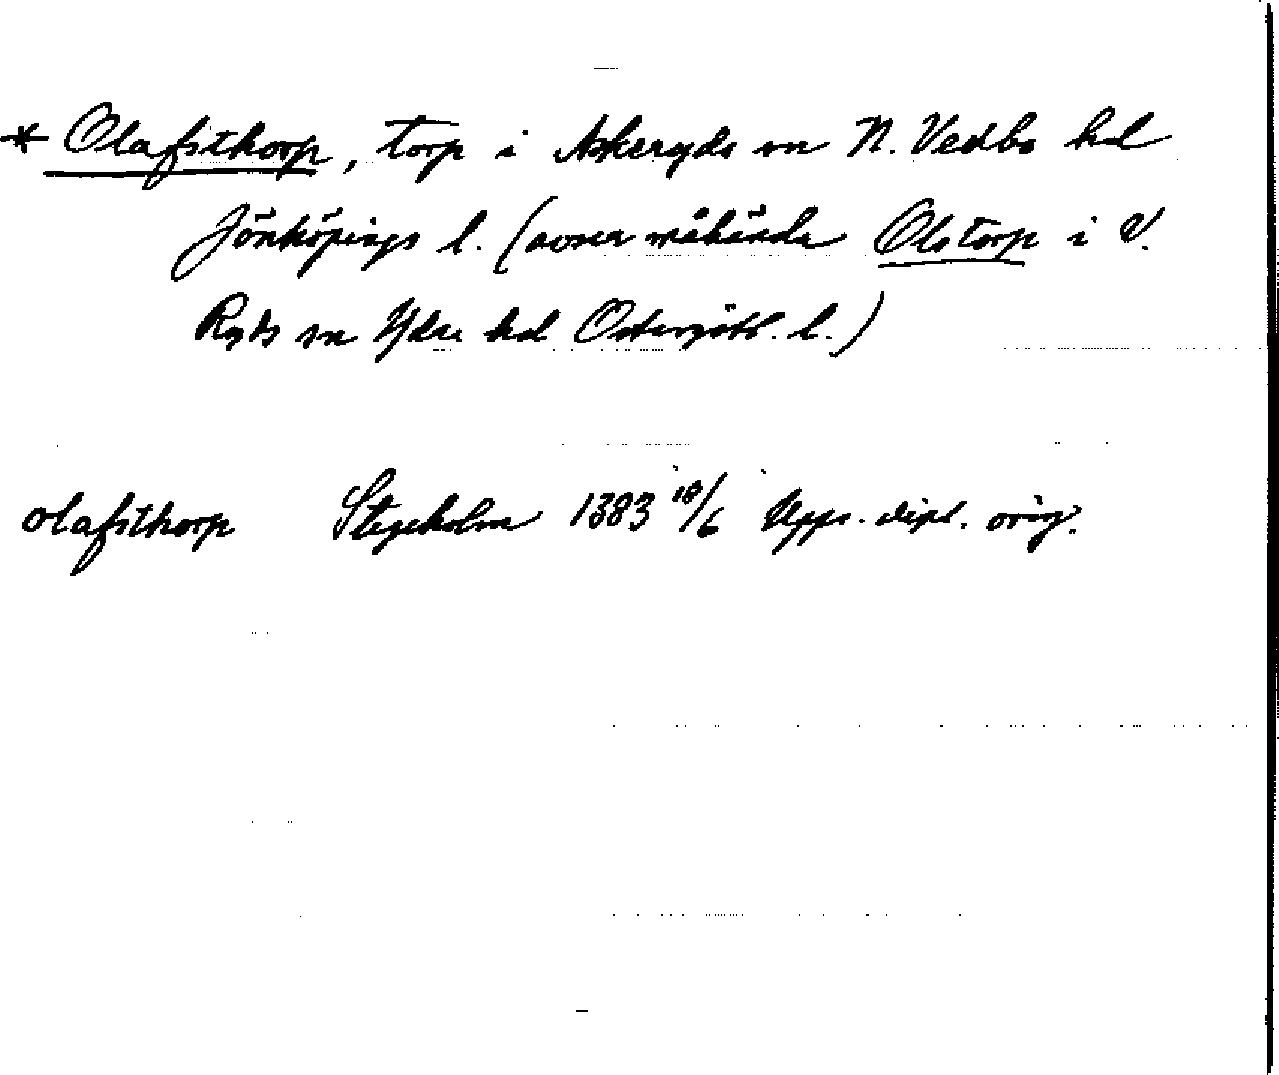 * Olafsthorp, torp i Askeryds sn N. Vedbo hd
Jönköpings l. (avser måhända Olstorp i V.
Ryds sn Ydre hd Östergötl. l.)
olafsthorp Stegeholm 1383 10/6 Upps. dipl. orig.